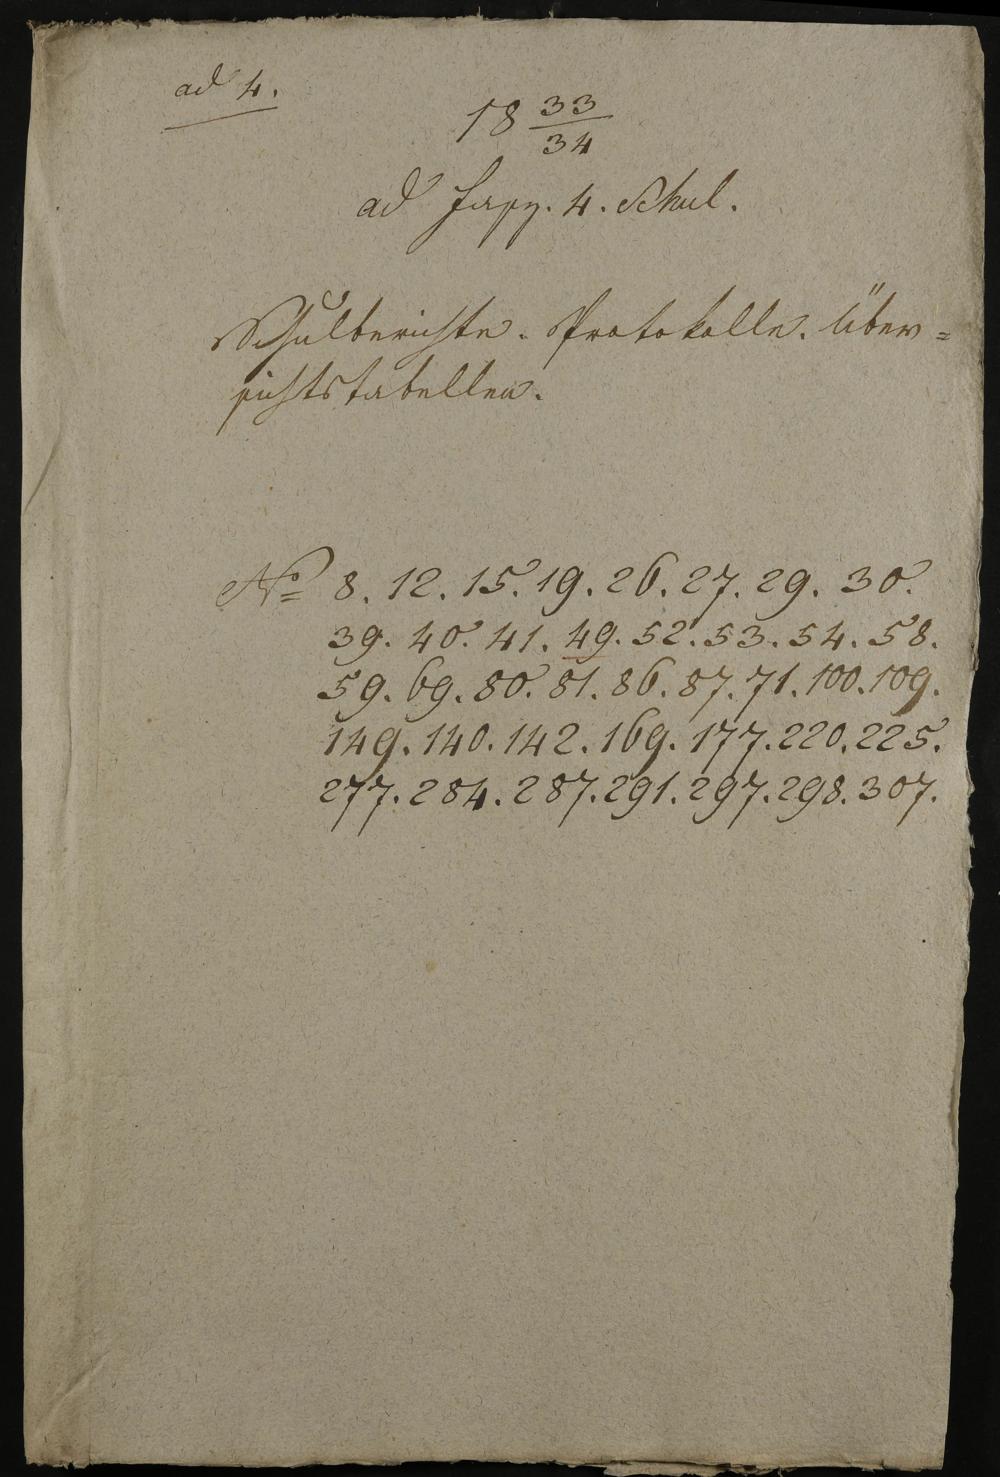 ad 4.
18 33/34
ad Fasz. 4. Schul.
Schulberichte. Protokolle. Über=
sichtstabellen.
No 8. 12. 15. 19. 26. 27. 29. 30.
39. 40. 41. 49. 52. 53. 54. 58.
59. 69. 80. 81. 86. 87. 71. 100. 109.
149. 140. 142. 169. 177. 220. 225.
277. 284. 287. 291. 297. 298. 307.